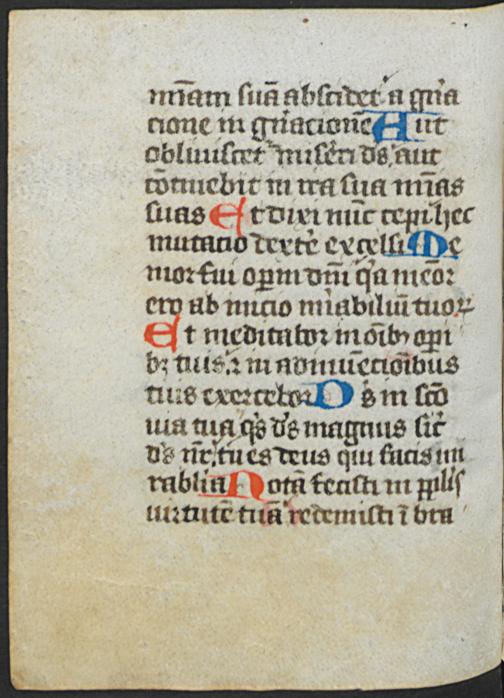 mīam suā abscidet a gn̄a
cione in gn̄acionē Aut
obliuiscet᷑ misẽri ds̄ aut
cōtinebit in ira sua mīas
suas Et dixi nūc cepi hec
mutacio dexte᷑ excelsi Me
mor fui opm̄ dn̄i q̄a mēor
ero ab inicio mi᷑abiliū tuoꝝ
Et meditabor in oīb; opi
b; tuis ⁊ in adinuēcioībus
tuis exercebor Ds̄ in scō
uia tua q̄s ds̄ magnus sic᷑
ds̄ nr̄ tu es deus qui facis mi
rablia Notā fecisti in ppl̄is
uirtutē tuā redemisti ī bra